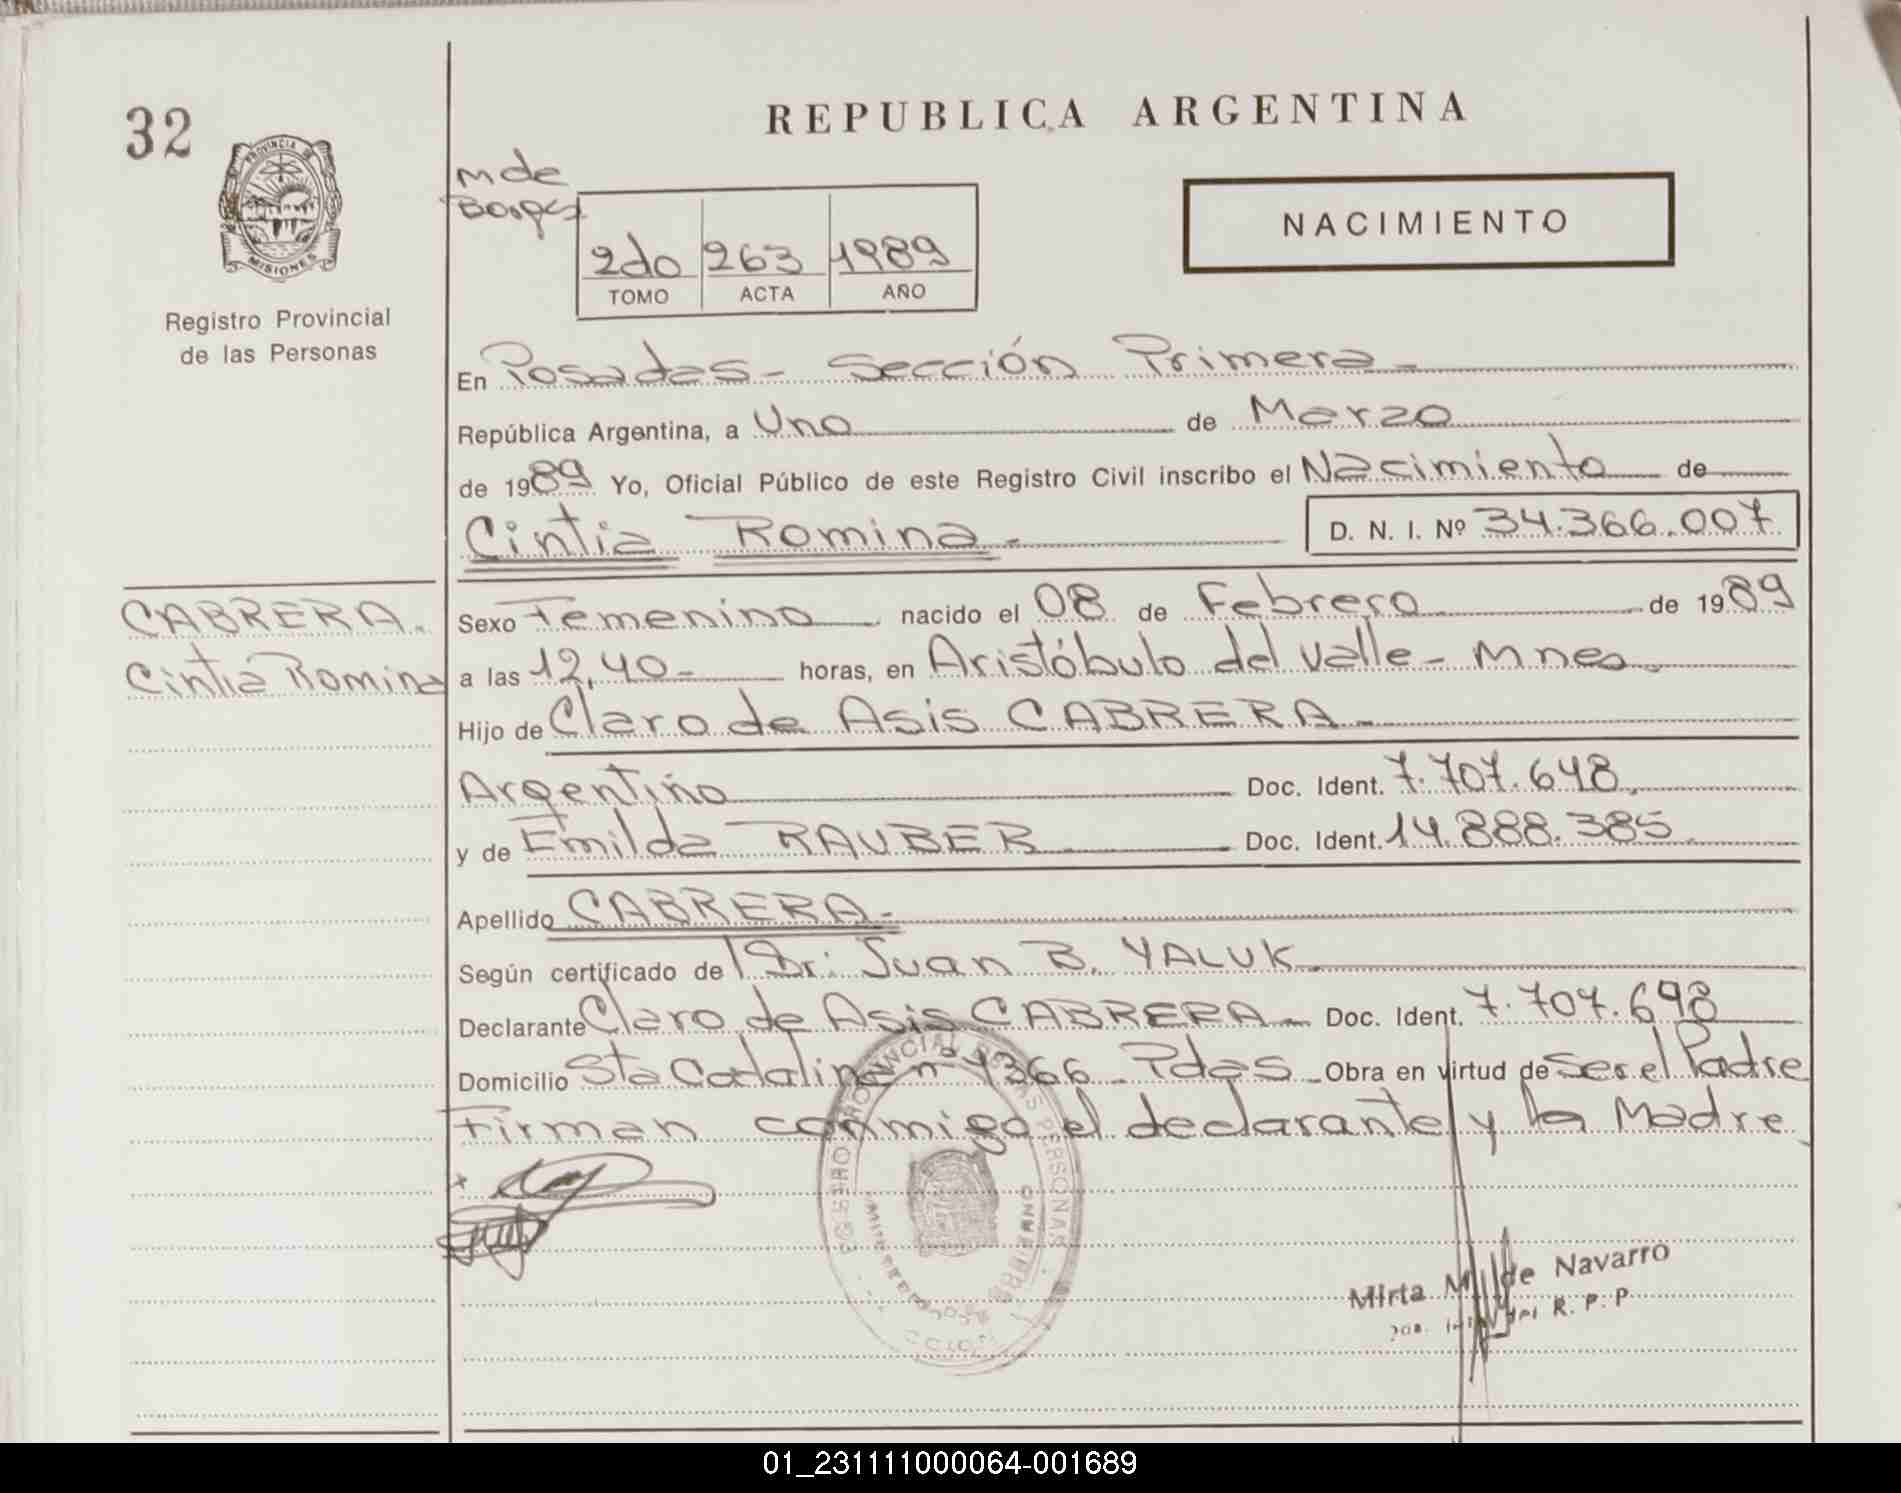 32
REPUBLICA ARGENTINA
PROVINCIA DE
MISIONES
Registro Provincial
de las Personas
M de
Borges
2do 263 1989
TOMO ACTA AÑO
NACIMIENTO
En Posadas - Sección Primera -
República Argentina, a Uno de Marzo
de 1989 Yo, Oficial Público de este Registro Civil inscribo el Nacimiento de
Cintia Romina - D. N. I. Nº 34.366.007
CABRERA.
Cintia Romina
Sexo Femenino nacido el 08 de Febrero de 1989
a las 12,40 - horas, en Aristóbulo del Valle - Mnes.
Hijo de Claro de Asis CABRERA -
Argentino Doc. Ident. 7.707.648
y de Emilda RAUBER Doc. Ident. 14.888.385
Apellido CABRERA -
Según certificado de Dr: Juan B. YALUK
Declarante Claro de Asis CABRERA - Doc. Ident. 7.707.698
Domicilio Sta Catalina nº 1366 - Pdas - Obra en virtud de ser el Padre
Firman conmigo el declarante y la Madre
PROVINCIAL DE LAS PERSONAS
Mirta M. de Navarro
R. P. P.
01_231111000064-001689